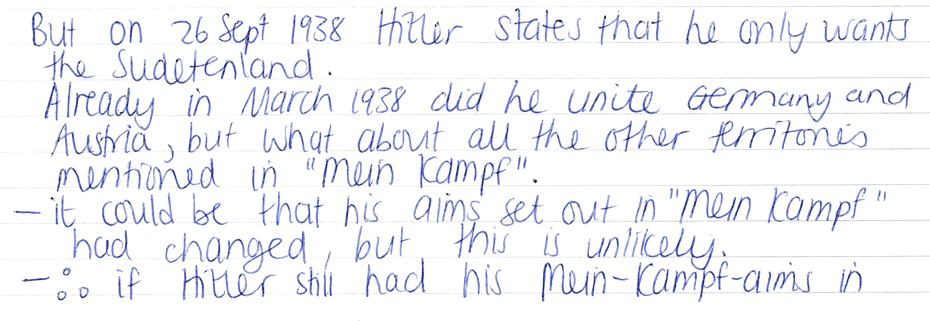 But on 26 Sept 1938 Hitler states that he only wants
the Sudetenland.
Already in March 1938 did he unite Germany and
Austria, but what about all the other territories
mentioned in "Mein Kampf".
- it could be that his aims set out in "Mein Kampf"
had changed, but this is unlikely.
- ∴ if Hitler still had his Mein-Kampf-aims in